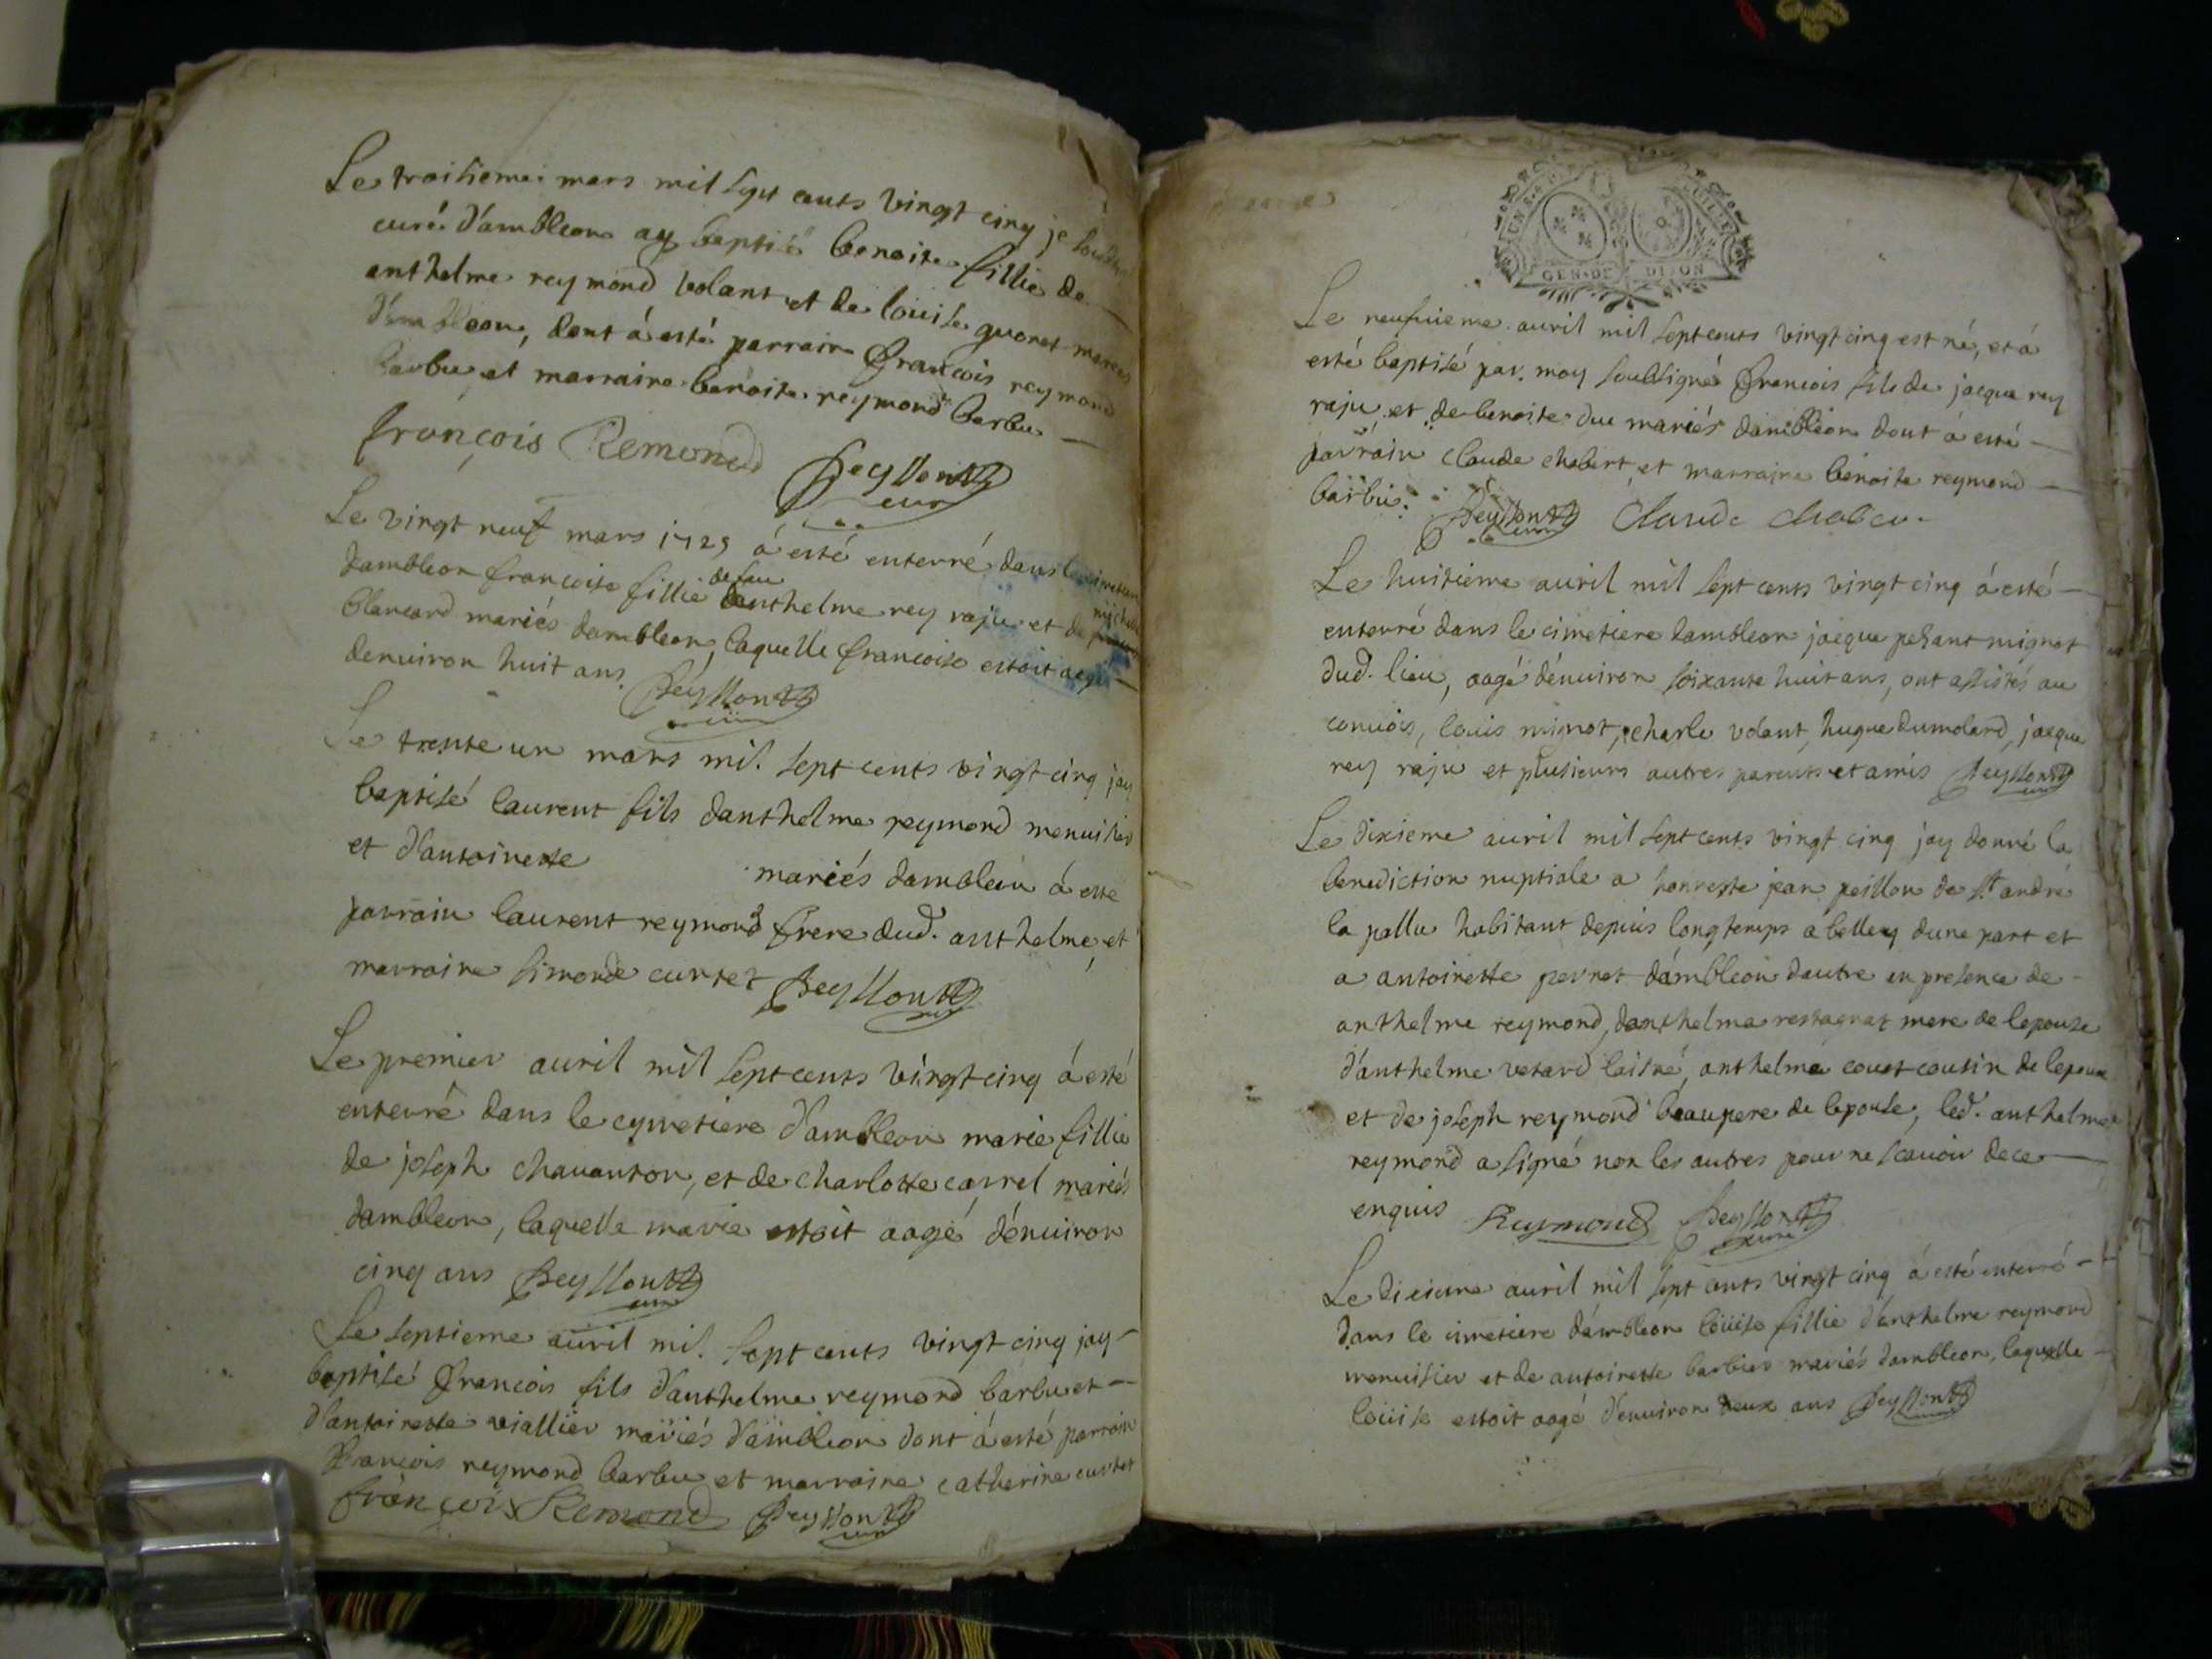 Le troisieme mars mil sept cents vingt cinq je
curé d'ambleon ay baptisé benoite fillie de
anthelme reymond volant et de loüise guoret mariés
d'ambleon, dont á esté parrain François reymond
barbu et marraine benoite reymond barbu
françois Remond
curé
Le vingt neuf mars 1725 á esté enterré dans le cimetiere
dambleon francoise fillie de feu anthelme rey raju et de michelle
blancard mariés dambleon, laquelle francoise estoit aagé
denuiron huit ans
Le trente un mars mil sept cents vingt cinq jay
baptisé laurent fils danthelme reymond menuisier
et d'antoinette mariés dambleon á esté
parrain laurent reymond frere dud. anthelme, et
marraine simonde curtet
Le premier auril mil sept cents vingt cinq á esté
enterré dans le cymetiere d'ambleon marie fillie
de joseph chauanton, et de charlotte carrel mariés
dambleon, laquelle marie estoit aagé dénuiron
cinq ans
Le septieme auril mil sept cents vingt cinq jay
baptisé François fils d'anthelme reymond barbu et
d'antoinette viallier mariés d'ambleon dont á esté parrain
François reymond barbu et marraine catherine curtet
françois Remond
GEN. DE DIJON
Le neufuieme auril mil sept cents vingt cinq est né, et á
esté baptisé par moy soubsigné François fils de jacque rey
raju et de benoite due mariés dambleon dont á esté
parrain claude chabert, et marraine benoite reymond
barbu. Claude
Le huitieme auril mil sept cents vingt cinq á esté
enterré dans le cimetiere dambleon jacque pesant mignot
dud. lieu, aagé dénuiron soixante huit ans, ont assistés au
conuois, louis mignot, charle volant, hugue dumolard, jacque
rey raju et plusieurs autres parents et amis
Le dixieme auril mil sept cents vingt cinq jay donné la
benediction nuptiale a honneste jean peillon de st andré
la pallu habitant depuis longtemps a belley dune part et
a antoinette pernet dámbleon dautre en presence de
anthelme reymond, danthelma restagnat mere de lepouse
d'anthelme vetard laisné, anthelme couet cousin de lepoux
et de joseph reymond beaupere de lepouse, led. anthelme
reymond a signé non les autres pour ne scauoir de ce
enquis Reymond
Le dixieme auril mil sept cents vingt cinq á esté enterré
dans le cimetiere dámbleon loüise fillie d'anthelme reymond
menuisier et de antoinette barbier mariés dambleon, laquelle
loüise estoit aagé d'enuiron deux ans